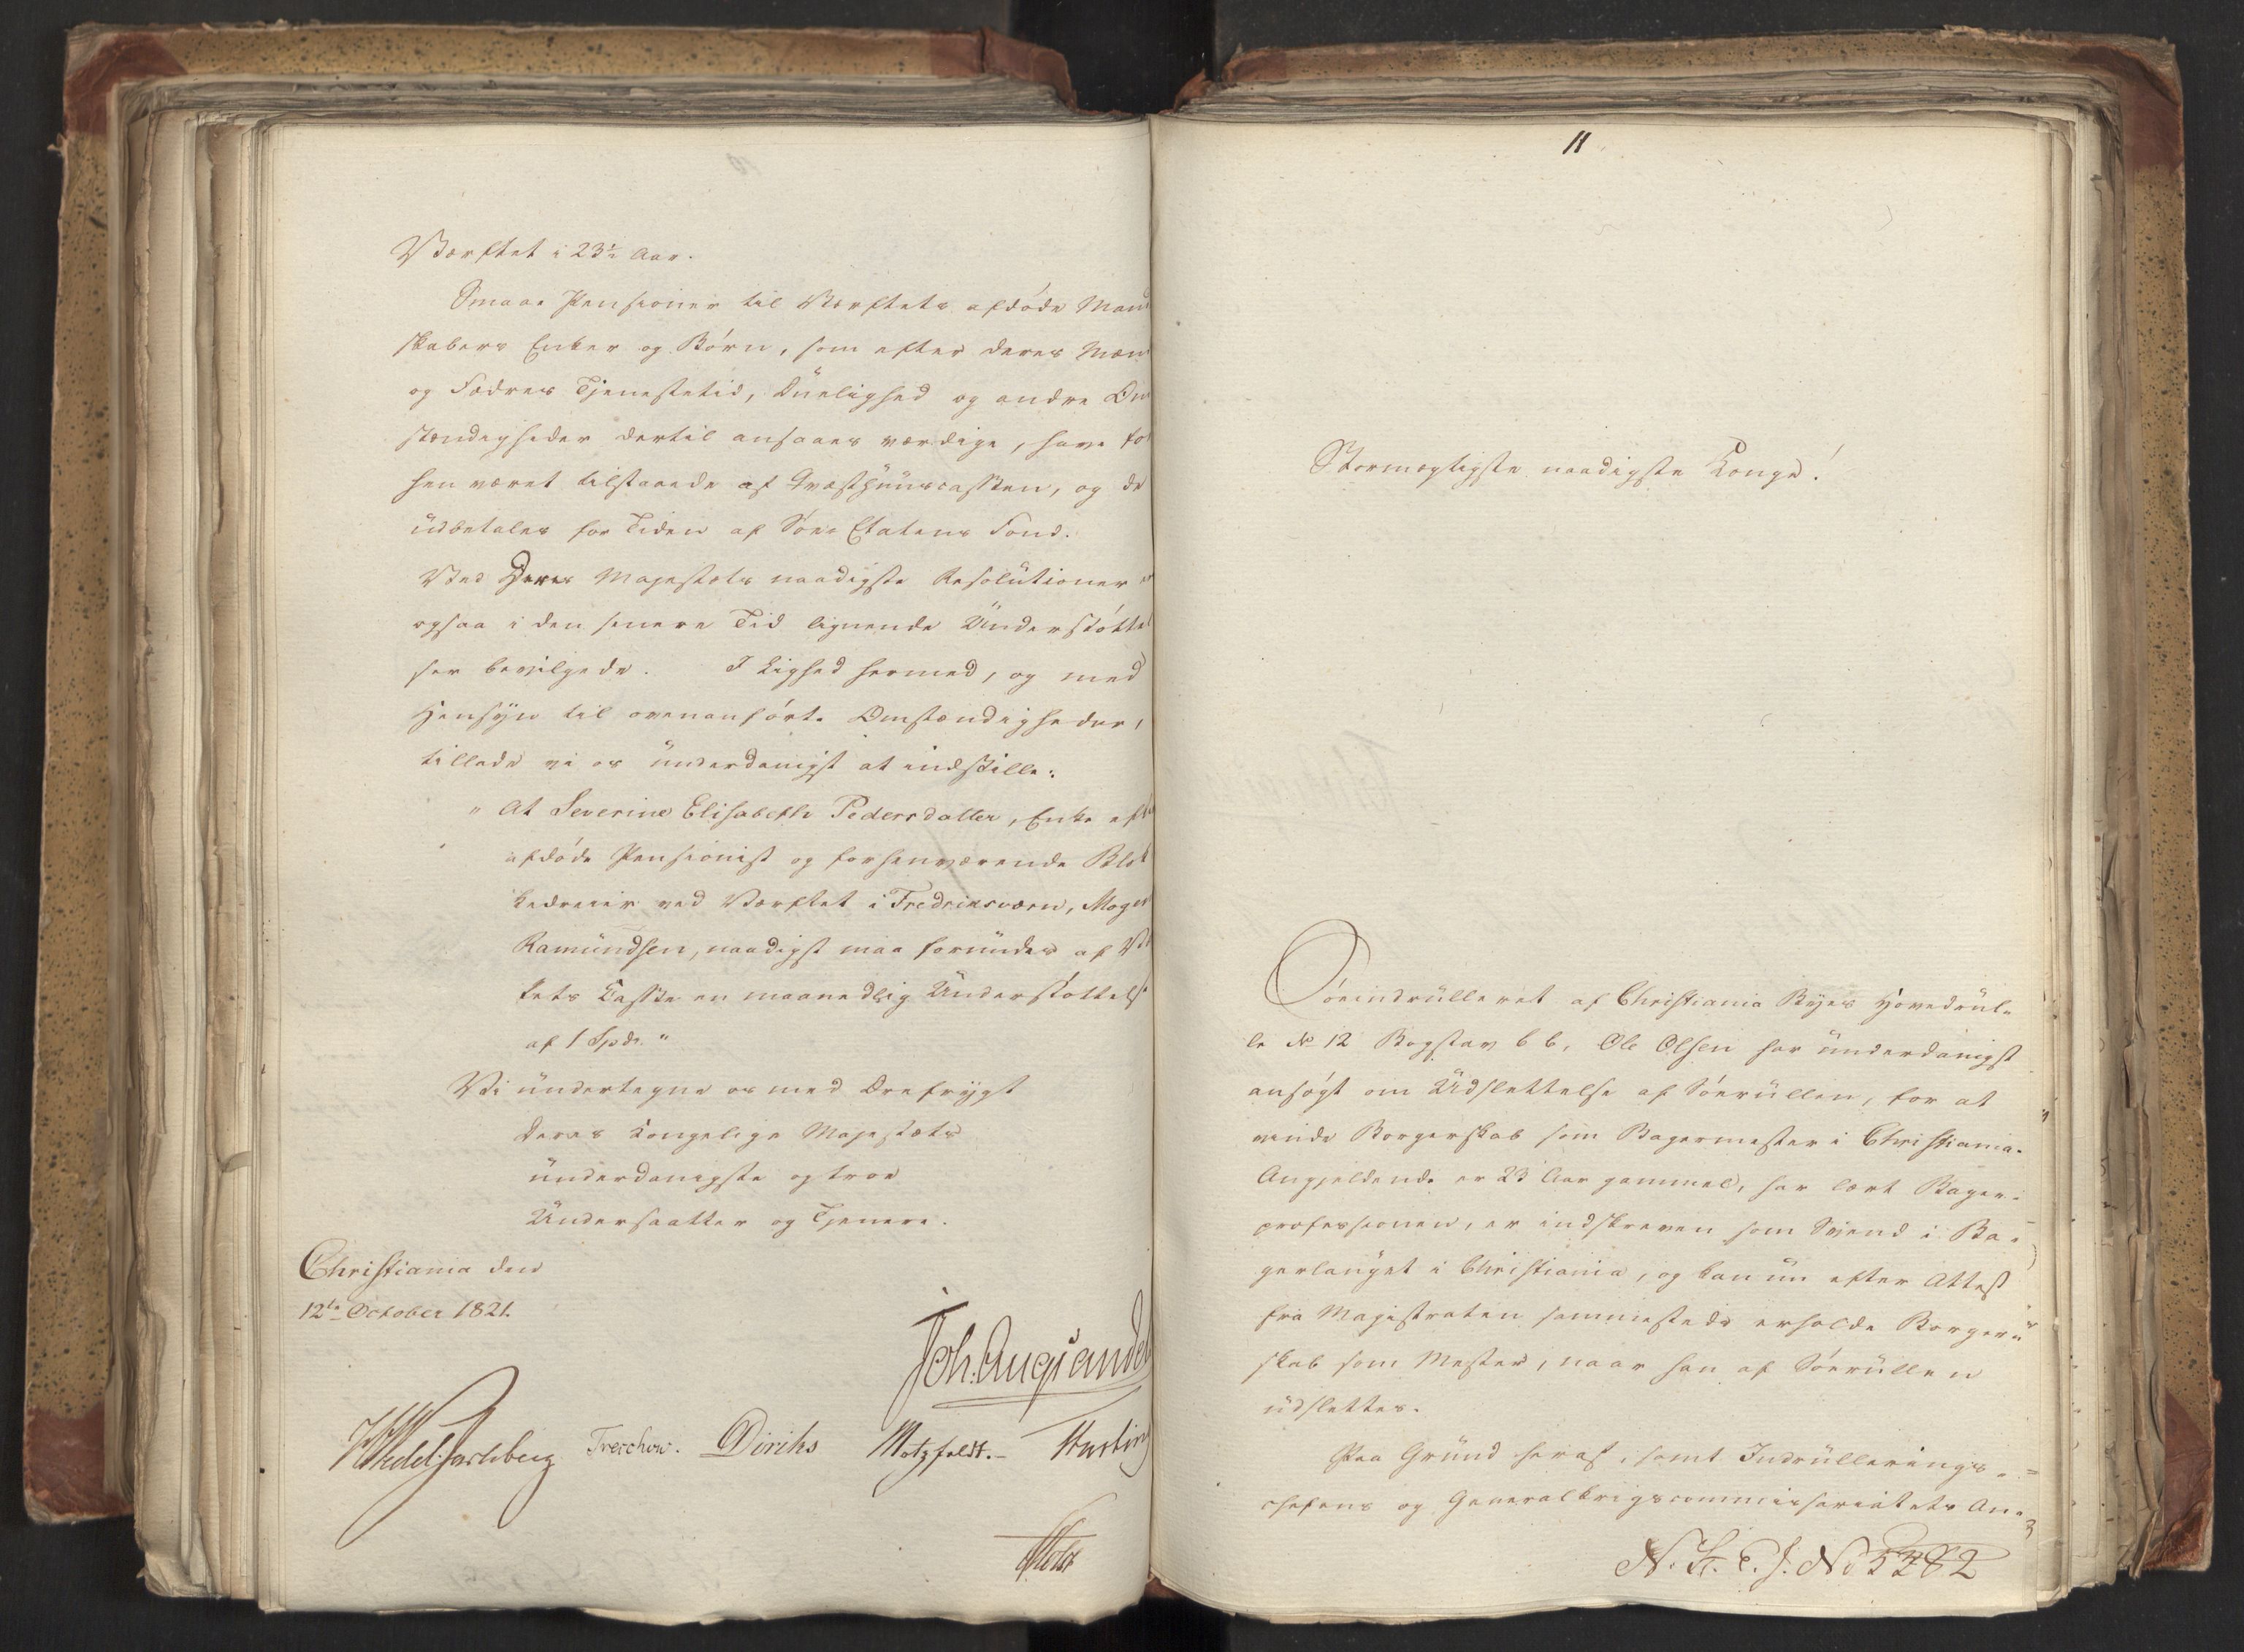 Værftet i 23½ Aar.
Smaae Pensioner til Værftets afdøde Mand
skabers Enker og Børn, som efter deres Mæn
og Fædres Tjenestetid, Duelighed og andre Om
stændigheder dertil ansaaes værdige, have for
hen været tilstaaede af Qvæsthuuscassen, og de
udbetales for Tiden af Søe Etatens Fond.
Ved Deres Majestæts naadigste Resolutioner er
ogsaa i den senere Tid lignende Understøttel
ser bevilgede. I Lighed hermed, og med
Hensyn til ovenanførte Omstændigheder,
tillade vi os underdanigst at indstille:
" At Severine Elisabeth Pedersdatter, Enke efter
afdøde Pensionist og forhenværende Blok
kedreier ved Værftet i Fredriksværn, Mogen
Ramundsen, naadigst maa forundes af Værf
tets Casse en maanedlig Understøttelse
af 1 Spd. "
Vi undertegne os med Ærefrygt
Deres Kongelige Majestæts
underdanigste og troe
Undersaatter og Tjenere.
Christiania den
12te October 1821.
Joh. Aug. Sandel
HWedel Jarlsberg Treschow. Diriks Motzfeldt. Krebting
Holst
11
Stormægtigste naadigste Konge!
Søeindrulleret af Christiania Byes Hovedrul-
le No 12 Bogstav bb, Ole Olsen har underdanigst
ansøgt om Udslettelse af Søerullen, for at
vinde Borgerskab som Bagermester i Christiania.
Angjeldende er 23 Aar gammel, har lært Bager-
professionen, er indskreven som Svend i Ba-
gerlauget i Christiania, og kan nu efter Attest
fra Magistraten sammesteds erholde Borger-
skab som Mester, naar han af Søerullen
udslettes.
Paa Grund heraf, samt Indrullerings-
chefens og Generalkrigscommissariatets An-
N. Sr. C. J. No 5282